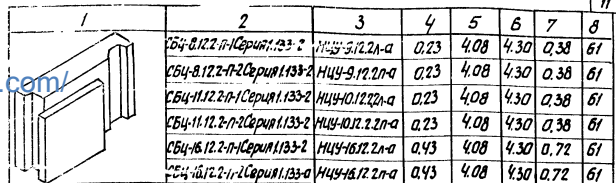 п
1 2 3 4 5 6 7 8
СБЦ-8.12.2-П-1 Серия 1.133-2 НЦУ-9.12.2л-а 0,23 4.08 4.30 0,38 61
.com/
СБЦ-8.12.2-П-2 Серия 1.133-2 НЦУ-9.12.2л-а 0,23 4.08 4.30 0,38 61
СБЦ-11.12.2-П-1 Серия 1.133-2 НЦУ-10.12.2л-а 0,23 4.08 4.30 0,38 61
СБЦ-11.12.2-П-2 Серия 1.133-2 НЦУ-10.12.2.2л-а 0,23 4.08 4.30 0,38 61
СБЦ-16.12.2-П-1 Серия 1.133-2 НЦУ-16.12.2л-а 0,43 4.08 4.30 0.72 61
СБЦ-16.12.2-П-2 Серия 1.133-а НЦУ-16.12.2л-а 0,43 4.08 4.30 0.72 61